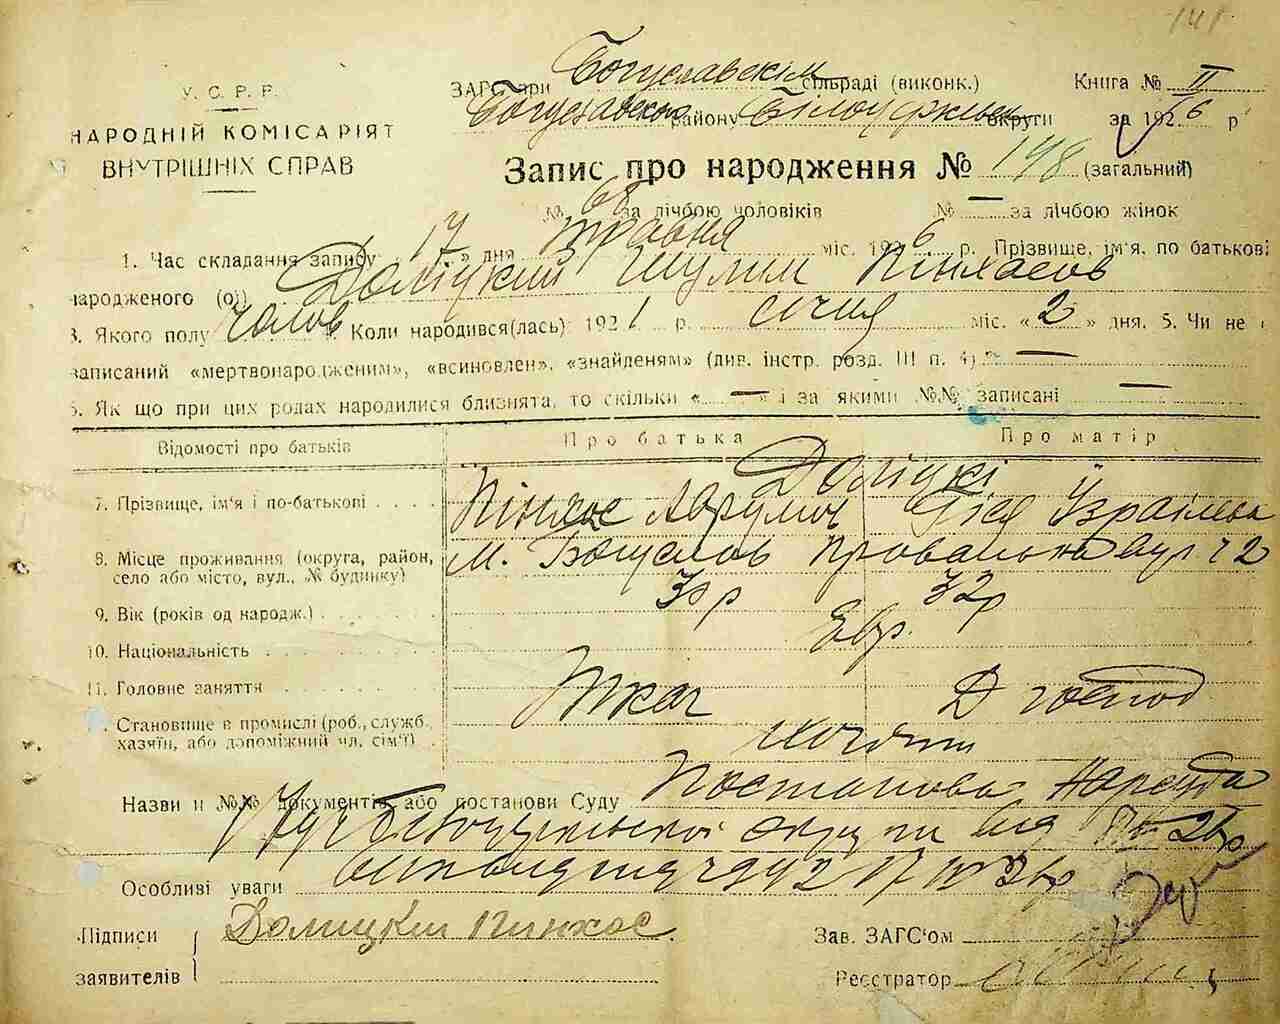 141
У. С. Р. Р.
НАРОДНІЙ КОМІСАРІЯТ
ВНУТРІШНІХ СПРАВ
ЗАГС при Богуславскім сільраді (виконк.) Книга № II
Богуславского району Білоцерківськ округи за 1926 р
Запис про народження № 148 (загальний)
№ 68 за лічбою чоловіків № — за лічбою жінок
1. Час складання запису 17 » дня травня міс. 1926 р. Прізвище, ім'я, по батькові
народженого (ої) Доліцкий Шулим Пінхасов
3. Якого полу чолов 4. Коли народився(лась): 1921 р. січня міс. « 2 » дня. 5. Чи не
записаний «мертвонародженим», «всиновлен», «знайденям» (див. інстр. розд. III п. 4) —
6. Як що при цих родах народилися близнята, то скільки « — » і за якими №№ записані —
Відомості про батьків Про батька Про матір
Доліцкі
7. Прізвище, ім'я і по-батькові Пінхас Ізраілевн
8. Місце проживання (округа, район, село або місто, вул., № будинку) М. Богуслав вул ч 2
9. Вік (років од народж.) 32р
10. Національність Євр.
11. Головне заняття Ткач Д господ
Становище в промислі (роб., служб. хазяїн, або допоміжний чл. сім'ї)
Назви и №№ документів або постанови Суду Постанова Нарсуда
округи
Особливі уваги
Підписи заявителів Долицкий Пинхас.
Зав. ЗАГС'ом
Реєстратор